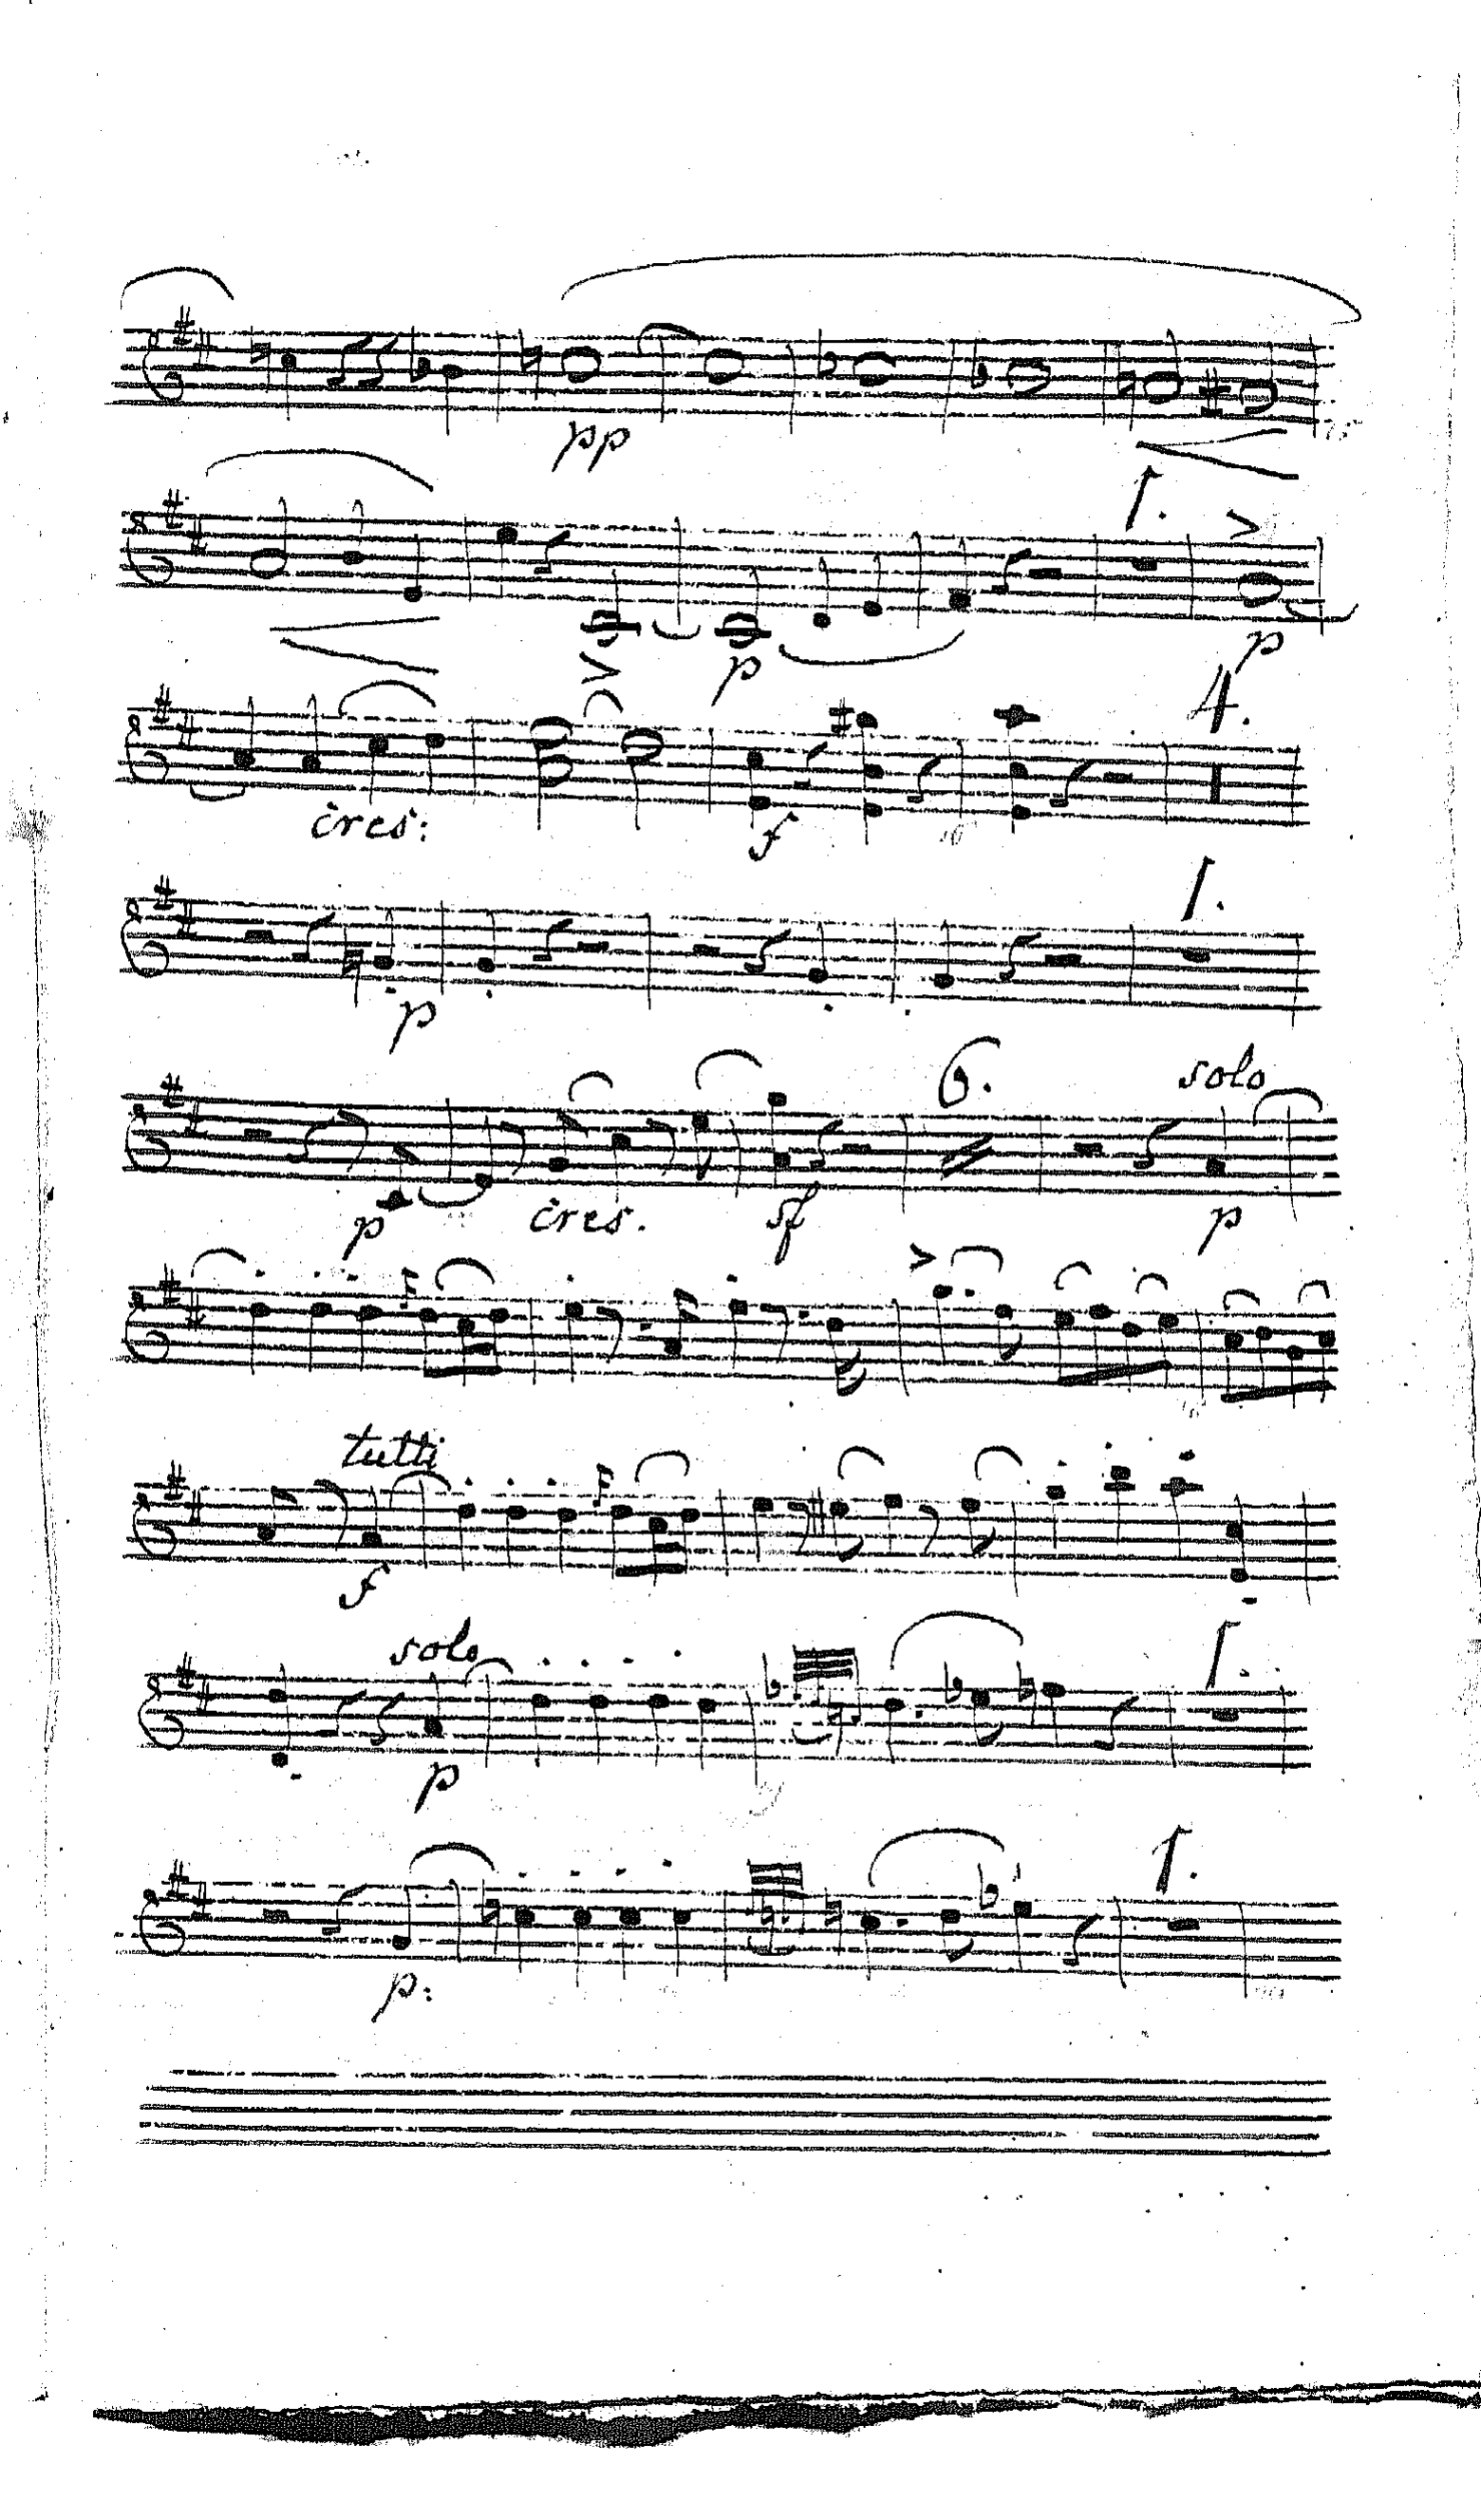 pp
1.
p p
4.
cres: f
1.
p
6. solo
p cres. sf p
tutti
f
solo 1
p
1.
p: